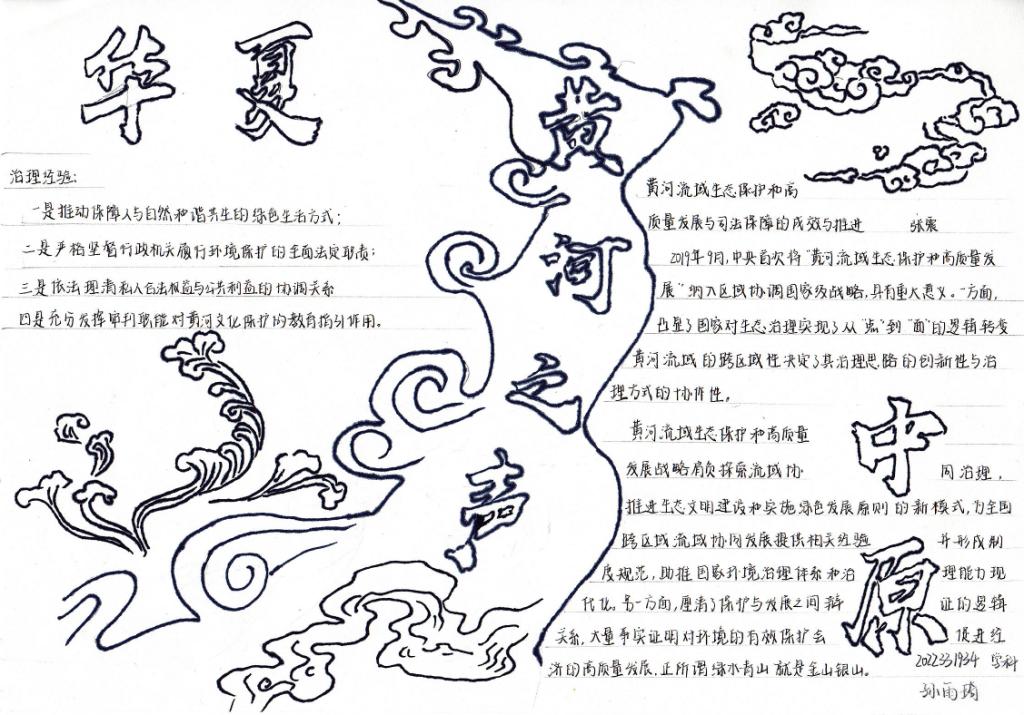 华夏
黄河之声
治理经验:
一是推动保障人与自然和谐共生的绿色生活方式;
二是严格坚督行政机关履行环境保护的全面法定职责;
三是依法理清私人合法权益与公共利益的协调关系
四是充分发挥审判职能对黄河文化保护的教育指引作用。
黄河流域生态保护和高
质量发展与司法保障的成效与推进 张震
2019年9月,中央首次将"黄河流域生态保护和高质量发
展"纳入区域协调国家级战略,具有重大意义。一方面,
凸显了国家对生态治理实现了从"点"到"面"的逻辑转变
黄河流域的跨区域性决定了其治理思路的创新性与治
理方式的协作性。
黄河流域生态保护和高质量
发展战略肩负探索流域协 同治理,
推进生态文明建设和实施绿色发展原则的新模式,为全国
跨区域流域协同发展提供相关经验 并形成制
度规范,助推国家环境治理体系和治 理能力现
代化。另一方面,厘清了保护与发展之间辩 证的逻辑
关系,大量事实证明对环境的有效保护会 促进经
济的高质量发展,正所谓绿水青山就是金山银山。
中原
2022331934 学科
孙雨琦